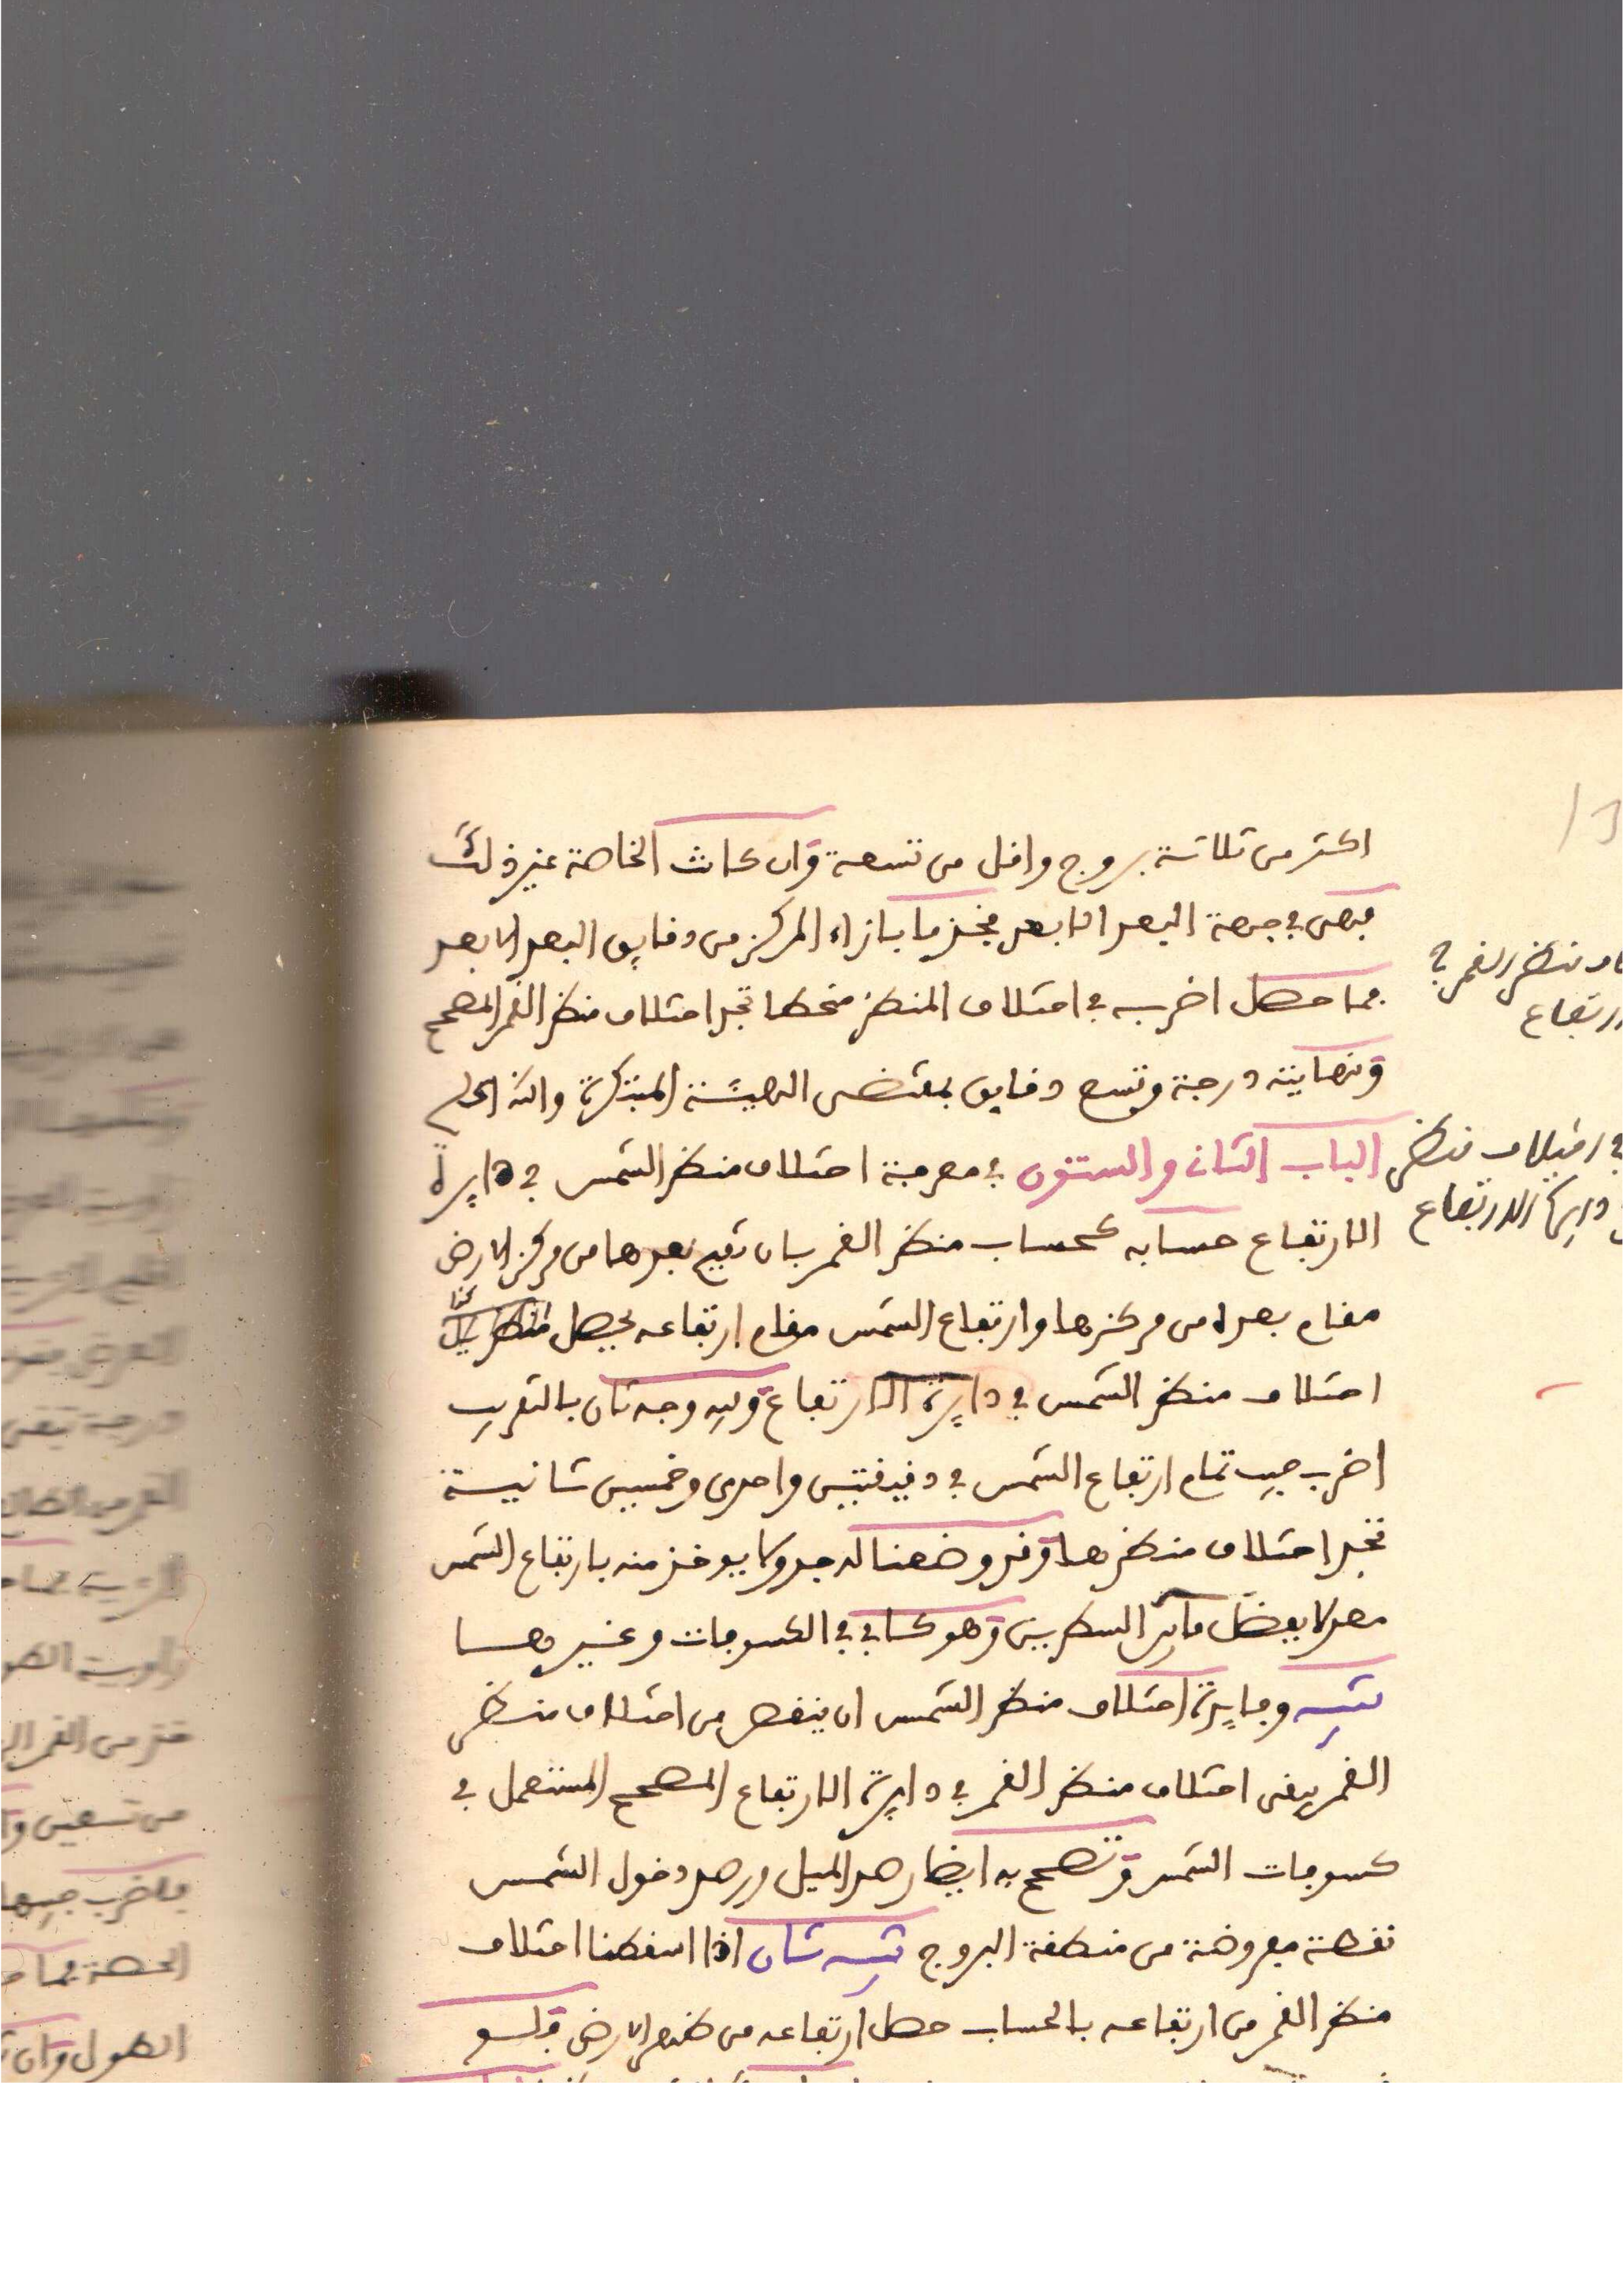 اكثر من ثلاثة بروج واقل من تسعة وان كانت الخاصة غير ذلك
فهى في جهة البعد الابعد فخذ ما بازاء المركز من دقايق البعد الابعد
فما حصل اضربه في اختلاف المنظر منحطا تجد اختلاف منظر القمر المصحح
ونهايته درجة وتسع دقايق بمقتضى الهيئة المبتكرة والله اعلم
الباب الثانى والستون في معرفة اختلاف منظر الشمس في دايرة
الارتفاع حسابه كحساب منظر القمر بان تقيم بعدها من مركز الارض
مقام بعده من مركزها وارتفاع الشمس مقام ارتفاعه يحصل
اختلاف منظر الشمس في دايرة الارتفاع وفيه وجه ثان بالتقريب
اضرب جيب تمام ارتفاع الشمس في دقيقتين واحدى وخمسين ثانية
تجد اختلاف منظرها وقد وضعنا له جدولا يوخذ منه بارتفاع الشمس
معدلا بفضل ما بين السطرين وهو كاف في الكسوفات وغيرها
تنبيه وفايدة اختلاف منظر الشمس ان ينقص من اختلاف منظر
القمر يبقى اختلاف منظر القمر في دايرة الارتفاع المصحح المستعمل في
كسوفات الشمس وتصحح به ايضا رصد الميل ورصد دخول الشمس
نقطة مفروضة من منطقة البروج تنبيه ثان اذا اسقطنا اختلاف
منظر القمر من ارتفاعه بالحساب حصل ارتفاعه من ظهر الارض فلو
منظر القمر في
ارتفاع
في اختلاف منظر
دايرة الارتفاع